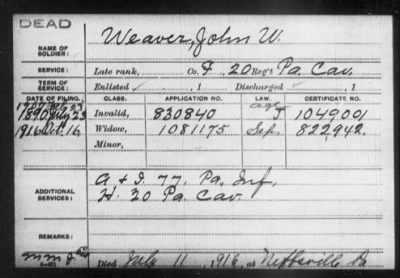 DEAD
NAME OF SOLDIER: Weaver, John W.
SERVICE: Late rank, Co. F, 20 Reg't Pa. Cav.
TERM OF SERVICE: Enlisted , 1 Discharged , 1
DATE OF FILING. CLASS. APPLICATION NO. LAW. CERTIFICATE NO.
1890 July 23 Invalid, 830840 J 1049001
1916 Oct. 16 Widow, 1081175 Sep. 822942.
Minor,
ADDITIONAL SERVICES: A & I. 77. Pa. Inf.
H. 20 Pa. Cav.
REMARKS:
Died July 11, 1916, at Neffsville Pa